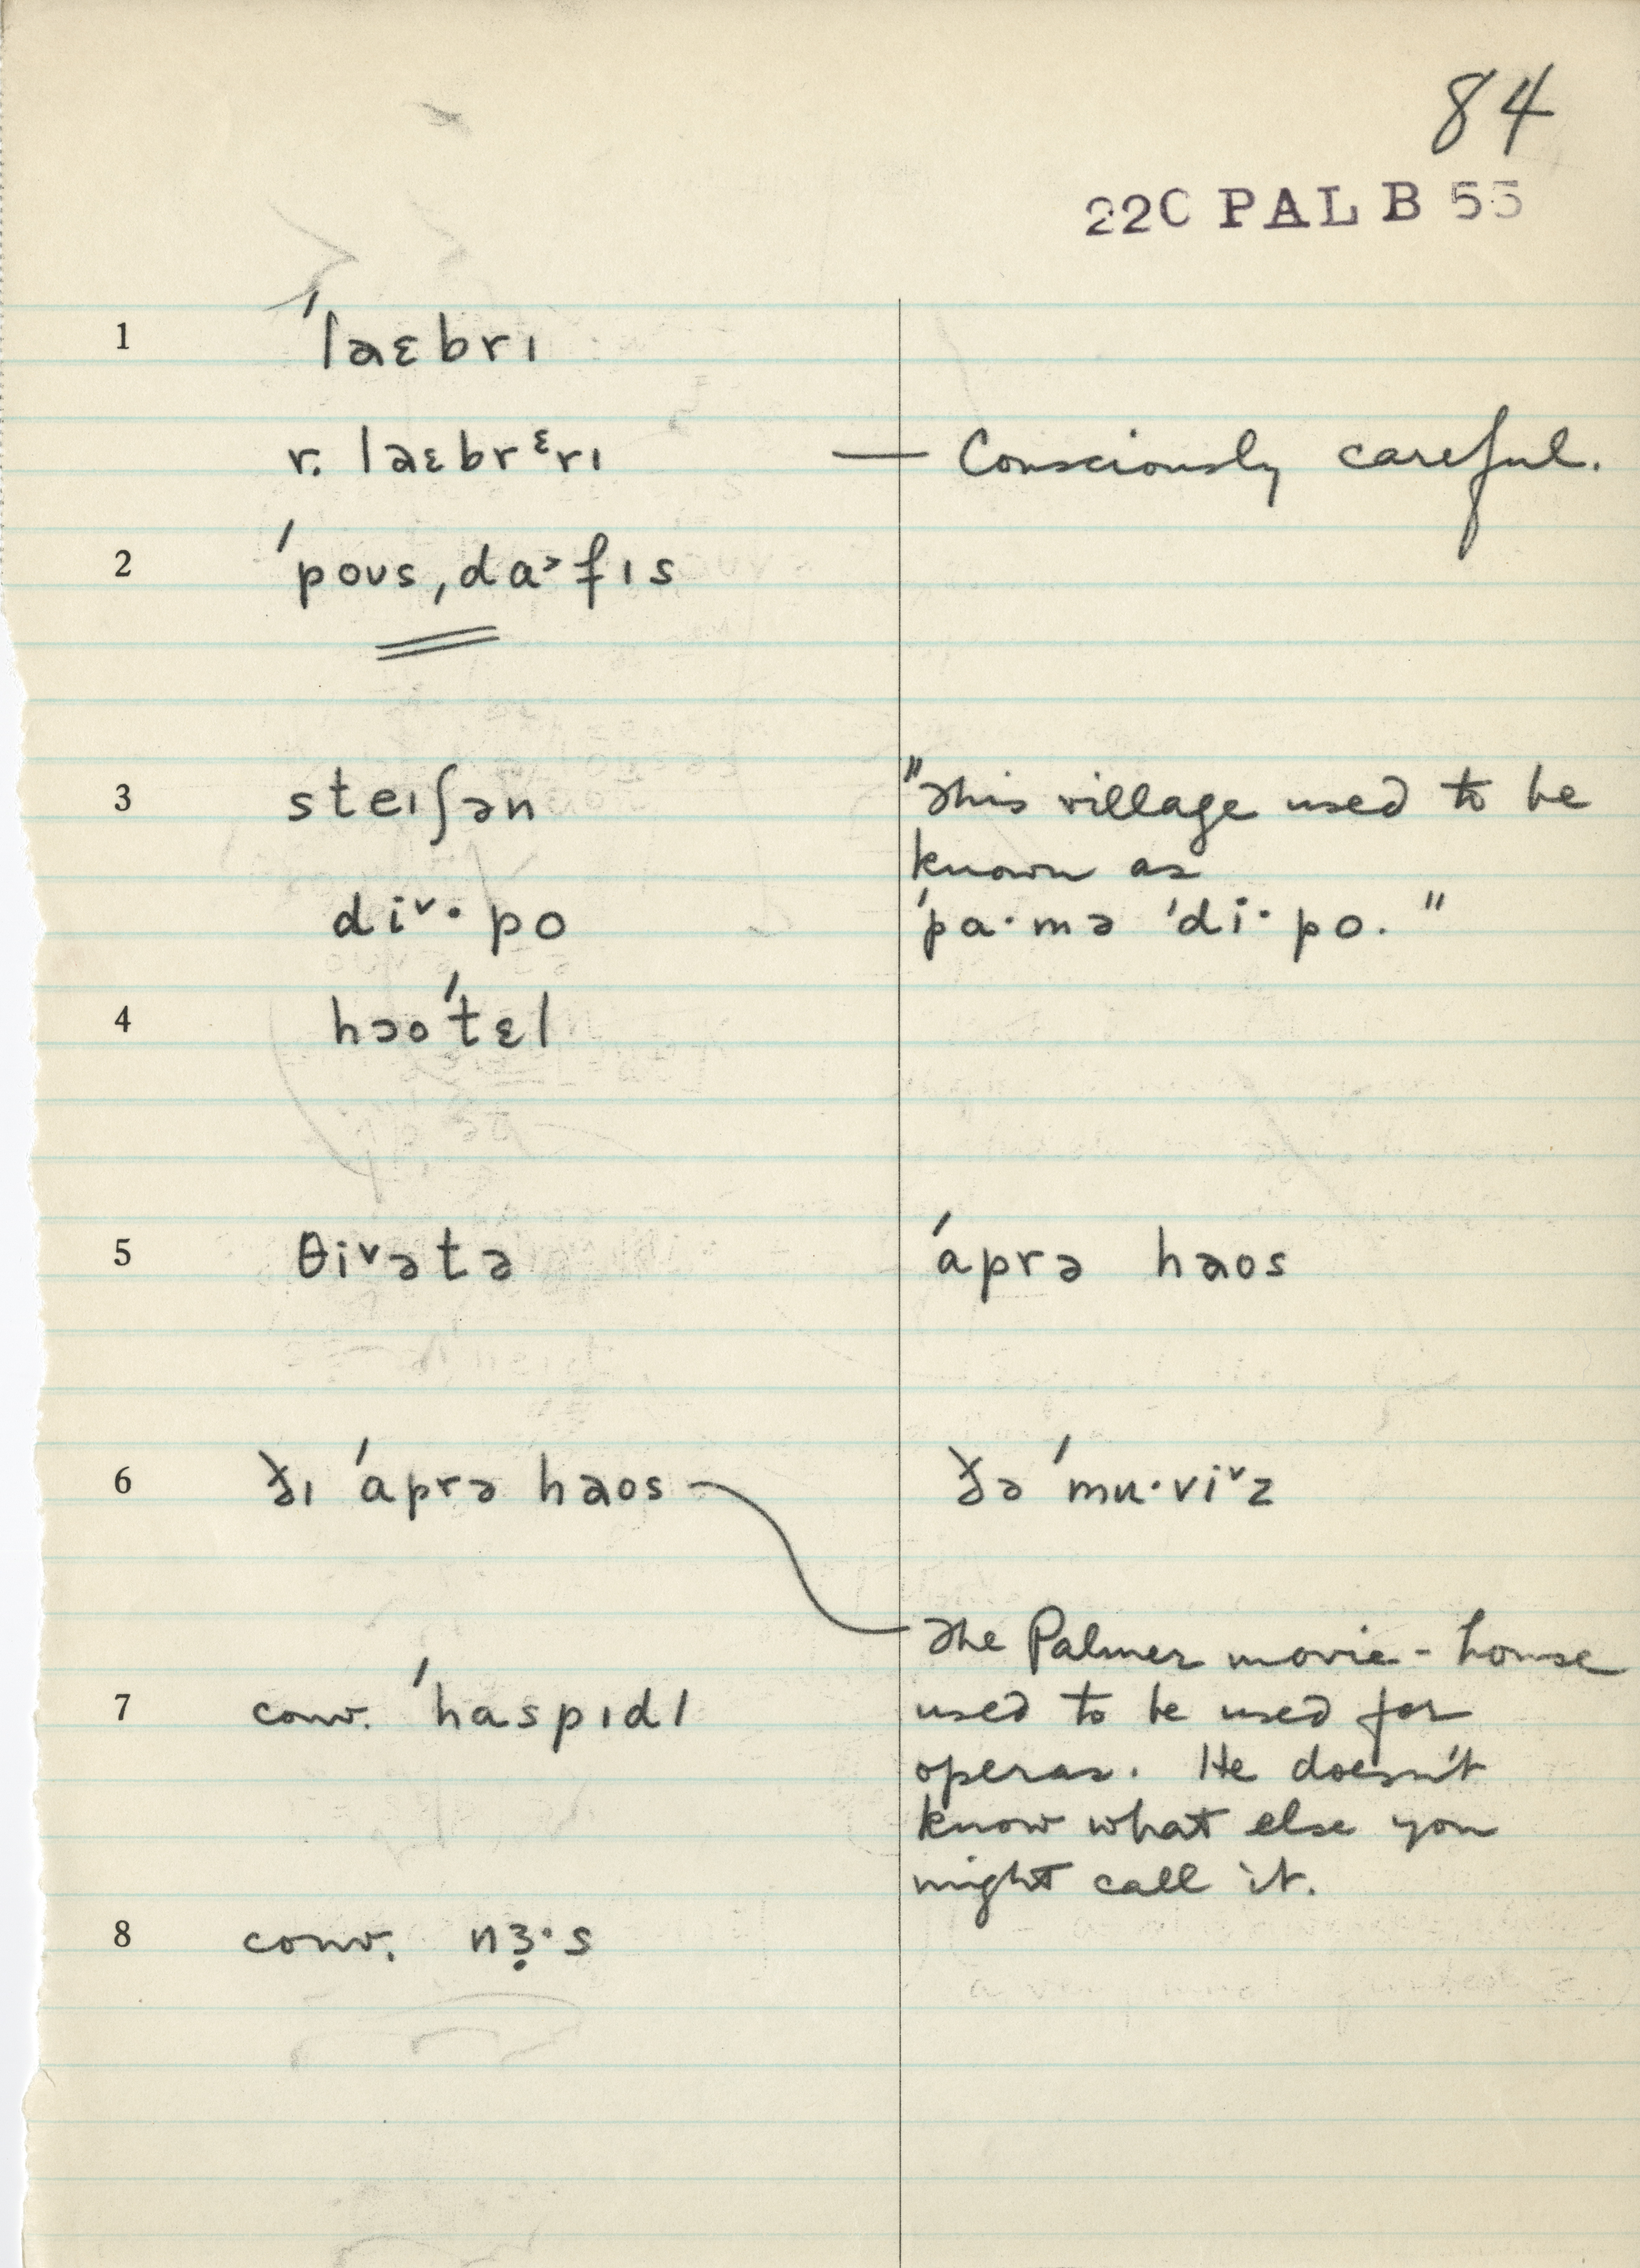 84
22C PAL B 55
1 ˈlaɛbrɪ
r. laɛbrᵋrɪ — Consciously careful.
2 ˈpoʊs ˌda˃fɪs
3 steɪʃən "This village used to be
known as
di˅· po ˈpa·mə ˈdi·po."
4 hɔoˈtɛl
5 θi˅ətə ˈaprə haos
6 ðɪ ˈaprə haos ðə ˈmu·vi˅z
The Palmer movie-house
7 conv. ˈhaspɪdl used to be used for
operas. He doesn't
know what else you
might call it.
8 conv. nɜ̣·s